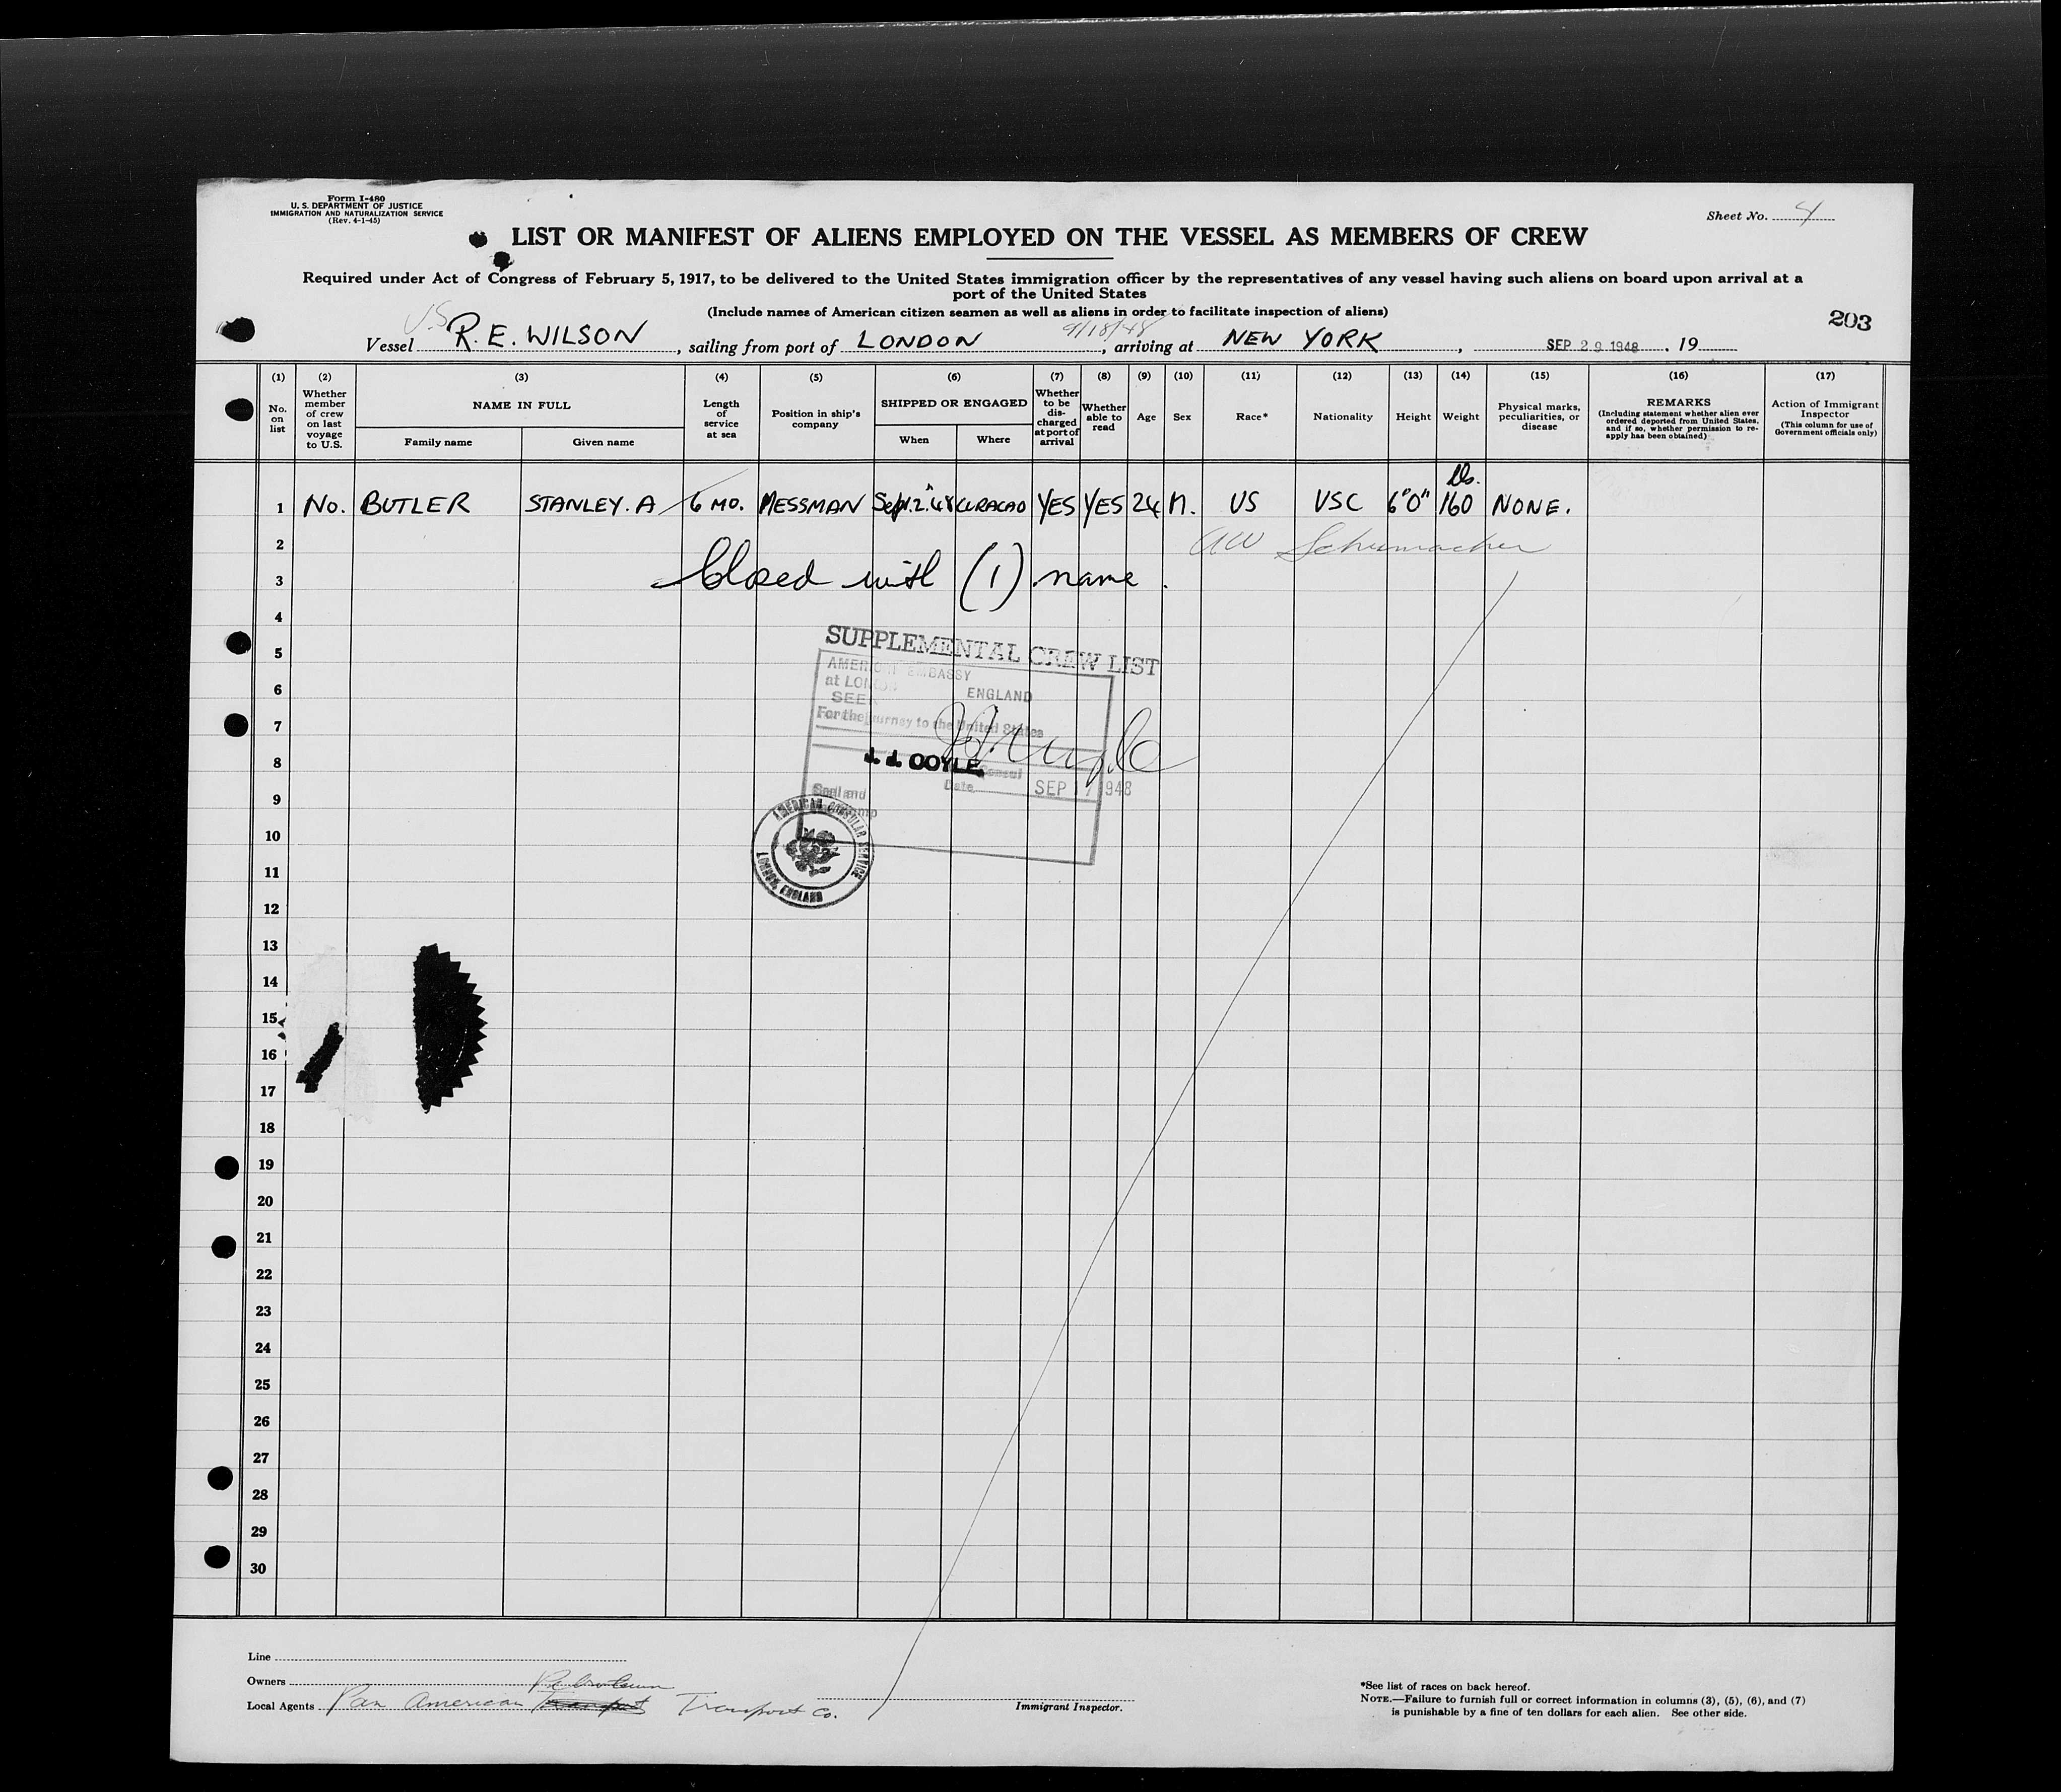 Form I-480
U. S. DEPARTMENT OF JUSTICE
IMMIGRATION AND NATURALIZATION SERVICE
(Rev. 4-1-45)
Sheet No. 4
LIST OR MANIFEST OF ALIENS EMPLOYED ON THE VESSEL AS MEMBERS OF CREW
Required under Act of Congress of February 5, 1917, to be delivered to the United States immigration officer by the representatives of any vessel having such aliens on board upon arrival at a
port of the United States
(Include names of American citizen seamen as well as aliens in order to facilitate inspection of aliens)
203
U.S. 9/18/48
Vessel R. E. WILSON, sailing from port of LONDON, arriving at NEW YORK, SEP 29 1948, 19
(1) (2) (3) (4) (5) (6) (7) (8) (9) (10) (11) (12) (13) (14) (15) (16) (17)
No. on list
Whether member of crew on last voyage to U.S.
NAME IN FULL
Family name
Given name
Length of service at sea
Position in ship's company
SHIPPED OR ENGAGED
When
Where
Whether to be discharged at port of arrival
Whether able to read
Age
Sex
Race*
Nationality
Height
Weight
Physical marks, peculiarities, or disease
REMARKS
(Including statement whether alien ever ordered deported from United States, and if so, whether permission to reapply has been obtained)
Action of Immigrant Inspector
(This column for use of Government officials only)
lbs.
1 No. BUTLER STANLEY. A 6 MO. MESSMAN Sept. 2. 48 CURACAO YES YES 24 M. US USC 6'0" 160 NONE.
2 AW Schumacher
3 Closed with (1) name.
4
SUPPLEMENTAL CREW LIST
5
AMERICAN EMBASSY
at LONDON ENGLAND
6
SEEN
For the journey to the United States
7
J. J. COYLE
8
Consul
Date SEP 17 1948
Seal and
9
AMERICAN CONSULAR SERVICE
LONDON, ENGLAND
10
11
12
13
14
15
16
17
18
19
20
21
22
23
24
25
26
27
28
29
30
Line
Owners
Petroleum
Local Agents Pan American Transport Transport Co.
Immigrant Inspector.
*See list of races on back hereof.
NOTE.—Failure to furnish full or correct information in columns (3), (5), (6), and (7)
is punishable by a fine of ten dollars for each alien. See other side.